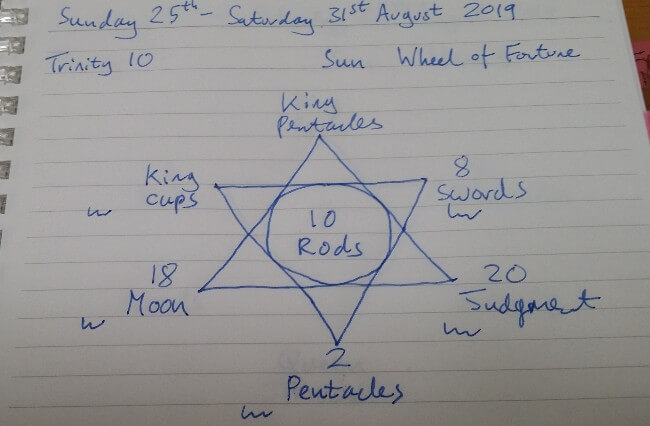 Sunday 25th - Saturday 31st August 2019
Trinity 10 Sun Wheel of Fortune
King
Pentacles
King
Cups
8
Swords
10
Rods
18
Moon
20
Judgment
2
Pentacles